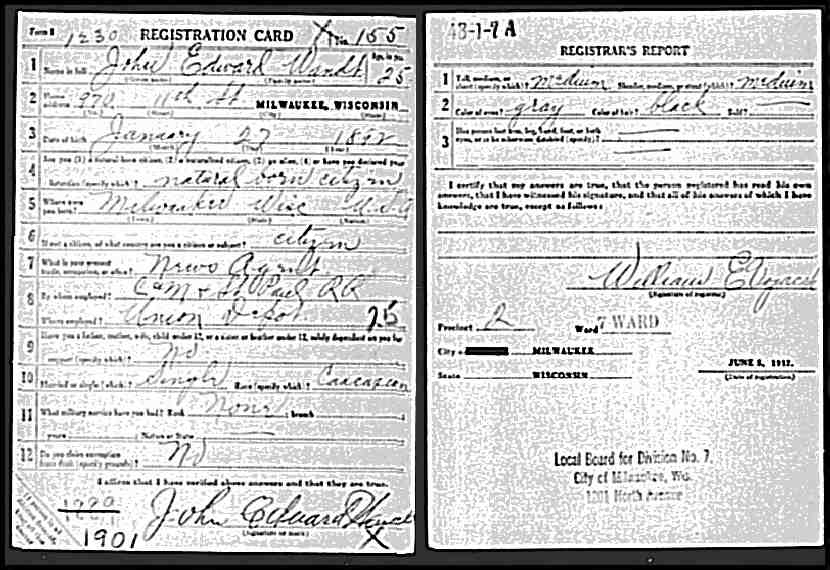 Form 1 1230 REGISTRATION CARD No. 155
1 Name in full John Edward Wandt Age, in yrs. 25
(Given name) (Family name)
2 Home address 970 11th St MILWAUKEE, WISCONSIN
(No.) (Street) (City) (State)
3 Date of birth January 27 1892
(Month) (Day) (Year)
4 Are you (1) a natural-born citizen, (2) a naturalized citizen, (3) an alien, (4) or have you declared your
intention (specify which)? natural born citizen
5 Where were you born? Milwaukee Wisc U.S.A
(Town) (State) (Nation)
6 If not a citizen, of what country are you a citizen or subject? citizen
7 What is your present trade, occupation, or office? News Agent
8 By whom employed? C&M & St Paul RR
Where employed? Union Depot 75
9 Have you a father, mother, wife, child under 12, or a sister or brother under 12, solely dependent on you for
support (specify which)? No
10 Married or single (which)? Single Race (specify which)? Caucasian
11 What military service have you had? Rank None ; branch
years ; Nation or State
12 Do you claim exemption from draft (specify grounds)? No
I affirm that I have verified above answers and that they are true.
1901
John Edward Wandt
(Signature or mark) X
43-1-7 A
REGISTRAR'S REPORT
1 Tall, medium, or short (specify which)? medium Slender, medium, or stout (which)? medium
2 Color of eyes? gray Color of hair? black Bald?
3 Has person lost arm, leg, hand, foot, or both
eyes, or is he otherwise disabled (specify)?
I certify that my answers are true, that the person registered has read his own
answers, that I have witnessed his signature, and that all of his answers of which I have
knowledge are true, except as follows:
William E
(Signature of registrar)
Precinct 2 Ward 7 WARD
City MILWAUKEE
State WISCONSIN
JUNE 5, 1917.
(Date of registration)
Local Board for Division No. 7,
City of Milwaukee, Wis.
1201 North Avenue